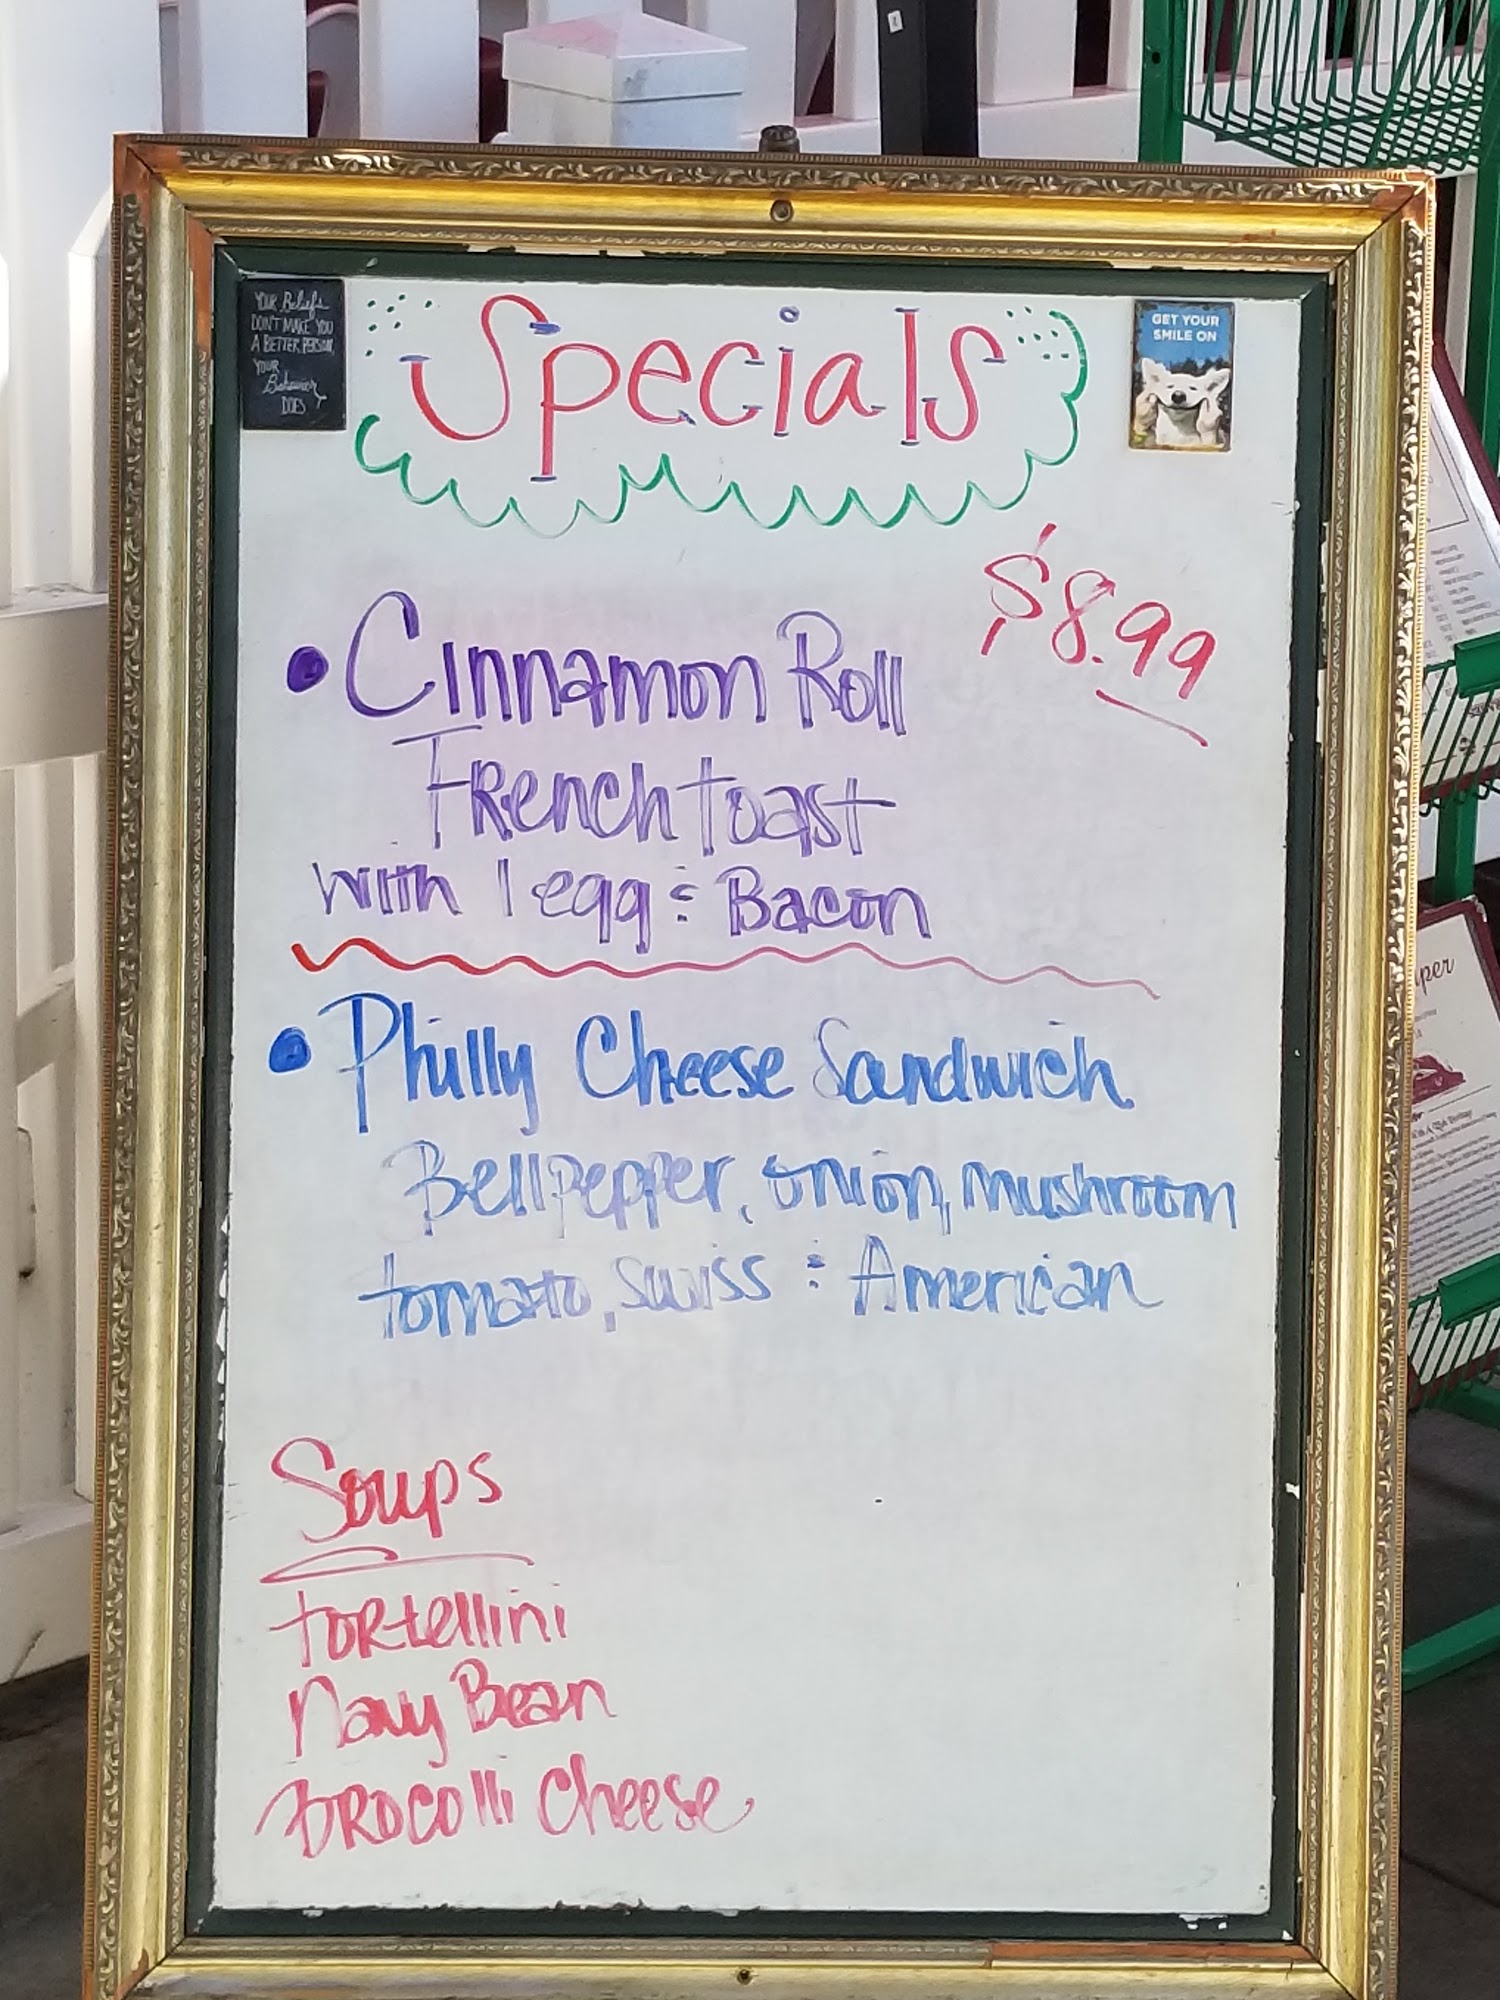 YOUR Beliefs
DON'T MAKE YOU
A BETTER PERSON,
YOUR
Behavior
DOES
Specials
GET YOUR
SMILE ON
$8.99
• Cinnamon Roll
French toast
with 1 egg & Bacon
• Philly Cheese Sandwich
Bell pepper, onion, mushroom
tomato, swiss & American
Soups
Tortellini
Navy Bean
Brocolli Cheese